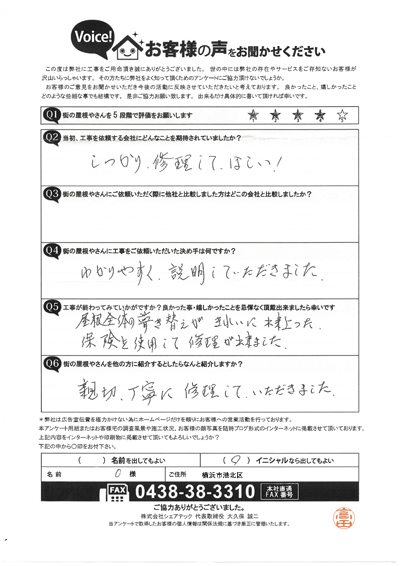 Voice!
お客様の声をお聞かせください
この度は弊社に工事をご用命頂き誠にありがとうございました。世の中には弊社の存在やサービスをご存知ないお客様が
沢山いらっしゃいます。その方たちに弊社をよく知って頂くためのアンケートにご協力頂けないでしょうか。
お客様のご意見をお聞かせいただき今後の活動に反映させていただきたいと考えております。良かったこと、嬉しかったこと
どのような些細な事でも結構です。是非ご協力お願い致します。出来るだけ具体的に書いて頂ければ幸いです。
Q1 街の屋根やさんを5段階で評価をお願いします ★ ★ ★ ★ ☆
Q2 当初、工事を依頼する会社にどんなことを期待されていましたか?
しっかり、修理して、ほしい!
Q3 街の屋根やさんにご依頼いただく際に他社と比較しました方はどこの会社と比較しましたか?
Q4 街の屋根やさんに工事をご依頼いただいた決め手は何ですか?
わかりやすく、説明していただきました。
Q5 工事が終わってみていかがですか?良かった事・嬉しかったことを忌憚なく頂戴出来ましたら幸いです
屋根全体の葺き替えが きれいに 出来上った。
保険を使用して 修理が出来ました。
Q6 街の屋根やさんを他の方に紹介するとしたらなんと紹介しますか?
親切、丁寧に 修理して、いただきました。
＊弊社は広告宣伝費を極力かけない為にホームページだけを頼りにお客様への営業活動を行っております。
本アンケート用紙またはお客様宅の調査風景や施工状況、お客様の顔写真を随時ブログ形式のインターネットに掲載させて頂いております。
上記内容をインターネットや印刷物に掲載させて頂いてもよろしいでしょうか?
下記の中から○印をお付下さい。
( ) 名前を出してもよい ( ○ ) イニシャルなら出してもよい
名前 O 様 ご住所 横浜市港北区
FAX 0438-38-3310 本社直通 FAX番号
ご協力ありがとうございました。
株式会社シェアテック 代表取締役 大久保 誠二
当アンケートで取得したお客様の個人情報は関係法規に基づき厳正に管理いたします。